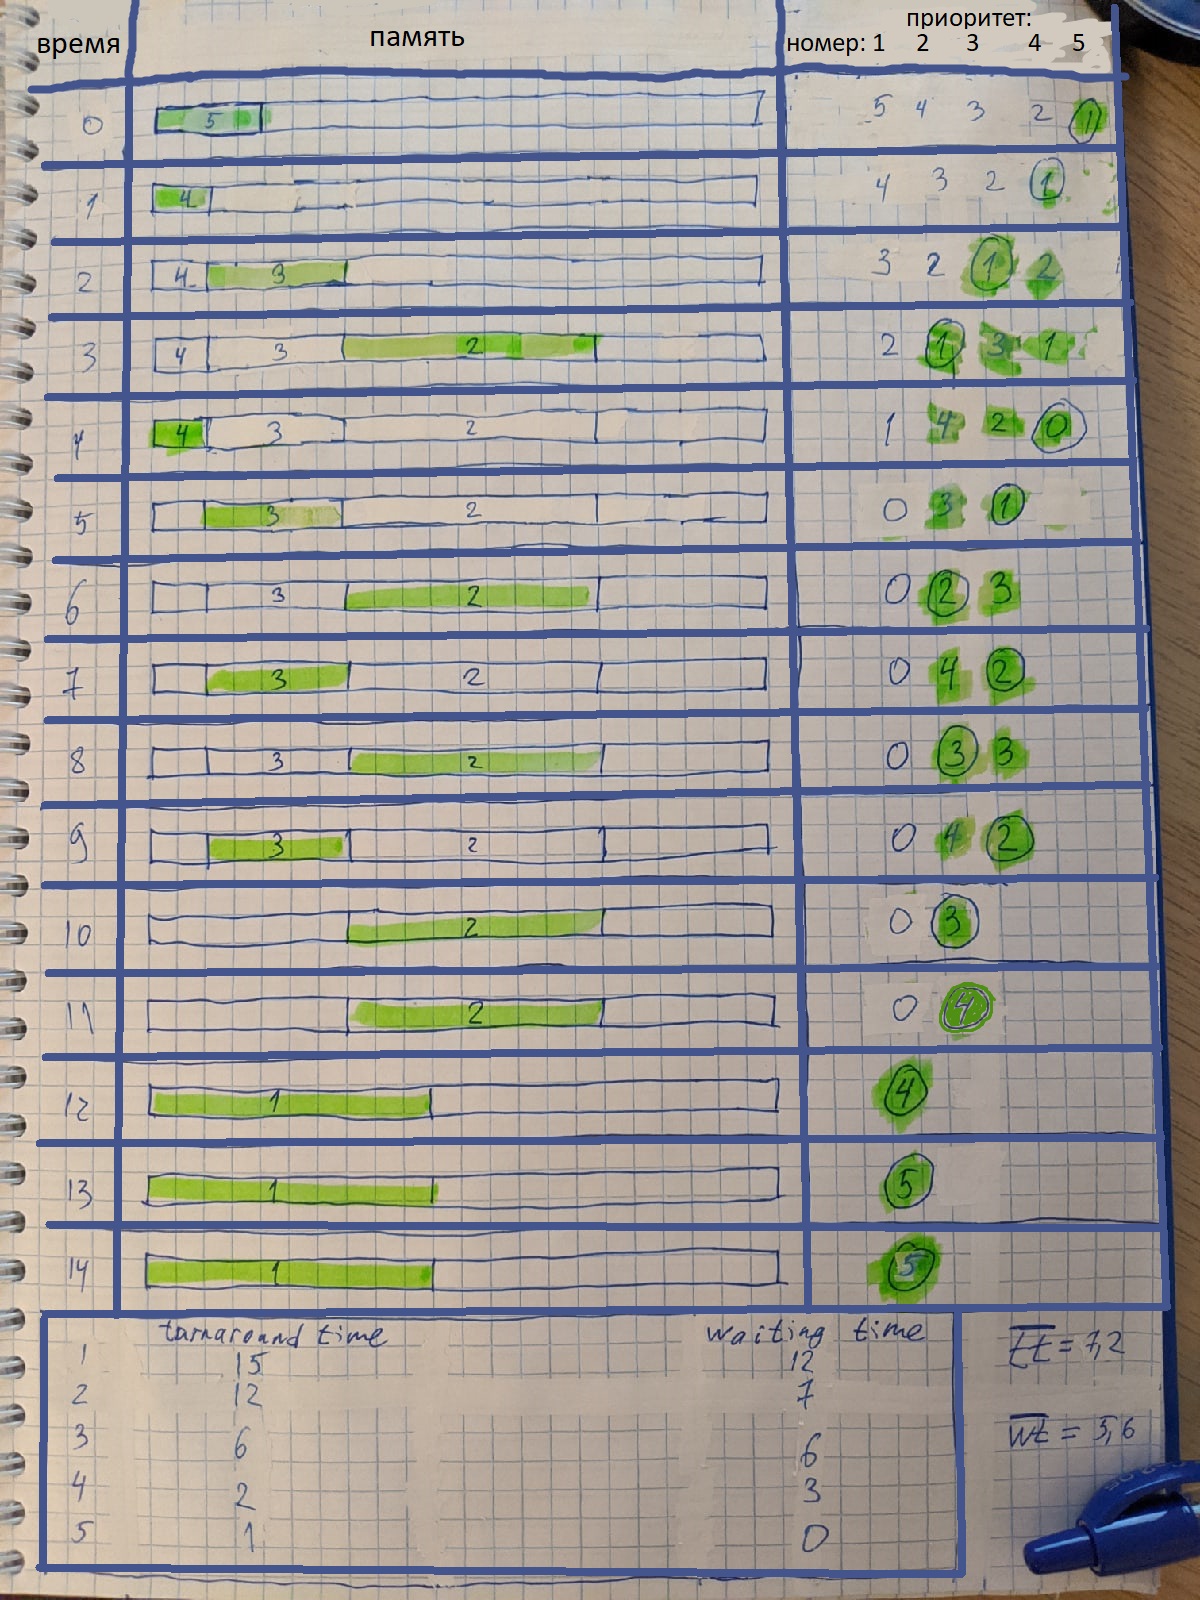 время память приоритет:
номер: 1 2 3 4 5
0 5 5 4 3 2 1
1 4 4 3 2 1
2 4 3 3 2 1 2
3 4 3 2 2 1 3 1
4 4 3 2 1 4 2 0
5 3 2 0 3 1
6 3 2 0 2 3
7 3 2 0 4 2
8 3 2 0 3 3
9 3 2 0 4 2
10 2 0 3
11 2 0 4
12 1 4
13 1 5
14 1 5
turnaround time waiting time
1 15 12
2 12 7
3 6 6
4 2 3
5 1 0
tt = 7,2
wt = 5,6